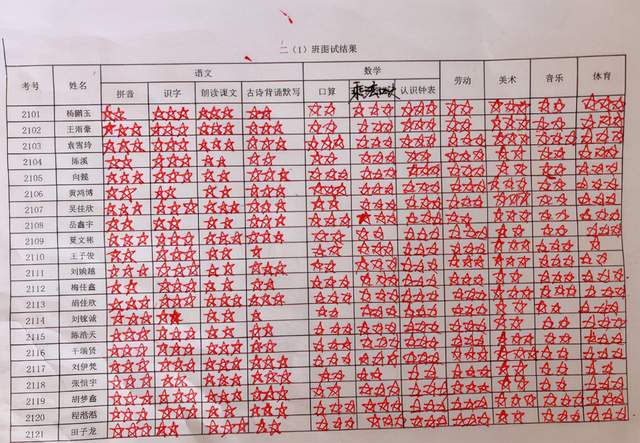 二（1）班面试结果
考号 姓名 语文 数学 劳动 美术 音乐 体育
拼音 识字 朗读课文 古诗背诵默写 口算 乘法口诀 认识钟表
2101 杨鹏玉
2102 王雨豪
2103 袁雪玲
2104 陈溪
2105 向懿
2106 黄鸿博
2107 吴佳欣
2108 岳鑫宇
2109 夏文栋
2110 王子俊
2111 刘婉越
2112 梅佳鑫
2113 胡佳欣
2114 刘稼诚
2115 陈浩天
2116 于瑞贤
2117 刘伊焚
2118 张恒宇
2119 胡梦鑫
2120 程浩浩
2121 田子龙